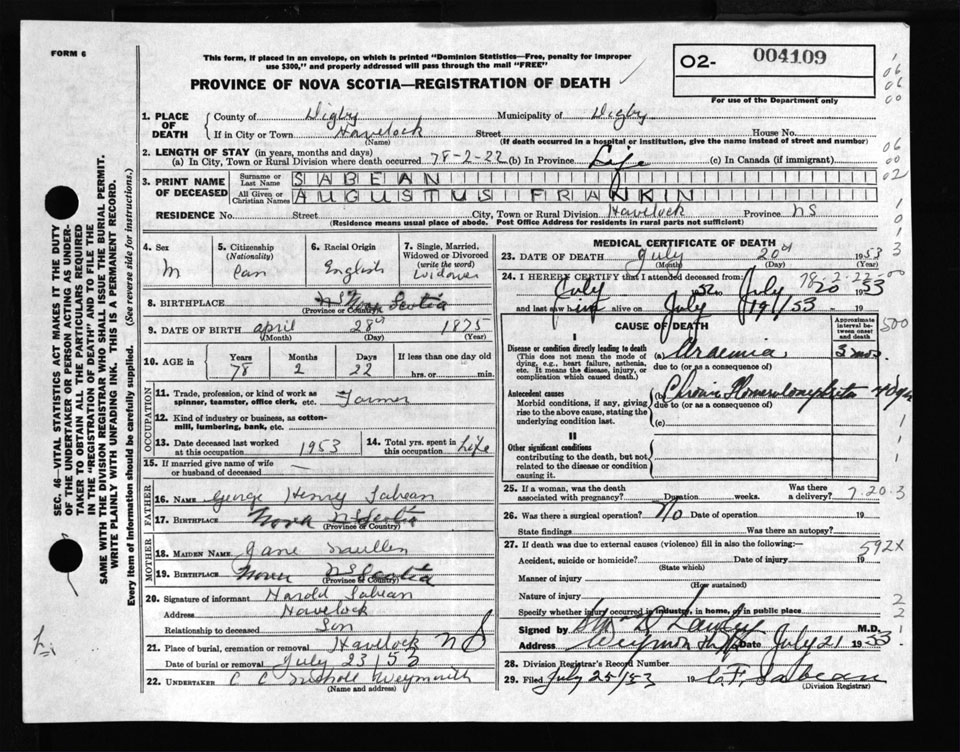 FORM 6
This form, if placed in an envelope, on which is printed "Dominion Statistics—Free, penalty for improper
use $300," and properly addressed will pass through the mail "FREE"
PROVINCE OF NOVA SCOTIA—REGISTRATION OF DEATH
O2- 004109
For use of the Department only
1. PLACE OF DEATH
County of Digby Municipality of Digby
If in City or Town Havelock Street House No.
(Name) (If death occurred in a hospital or institution, give the name instead of street and number)
2. LENGTH OF STAY (in years, months and days)
(a) In City, Town or Rural Division where death occurred 78-2-22 (b) In Province Life (c) In Canada (if immigrant)
3. PRINT NAME OF DECEASED
Surname or Last Name SABEAN
All Given or Christian Names AUGUSTUS FRANKIN
RESIDENCE No. Street City, Town or Rural Division Havelock Province NS
(Residence means usual place of abode. Post Office Address for residents in rural parts not sufficient)
4. Sex M
5. Citizenship (Nationality) Can
6. Racial Origin English
7. Single, Married, Widowed or Divorced (write the word) Widower
8. BIRTHPLACE Nova Scotia
(Province or Country)
9. DATE OF BIRTH April 28th 1875
(Month) (Day) (Year)
10. AGE in Years 78 Months 2 Days 22 If less than one day old hrs. or min.
OCCUPATION
11. Trade, profession, or kind of work as spinner, teamster, office clerk, etc. Farmer
12. Kind of industry or business, as cotton-mill, lumbering, bank, etc.
13. Date deceased last worked at this occupation 1953
14. Total yrs. spent in this occupation Life
15. If married give name of wife or husband of deceased —
FATHER
16. NAME George Henry Sabean
17. BIRTHPLACE Nova Scotia
(Province or Country)
MOTHER
18. MAIDEN NAME Jane
19. BIRTHPLACE Nova Scotia
(Province or Country)
20. Signature of informant Harold Sabean
Address Havelock
Relationship to deceased Son
21. Place of burial, cremation or removal Havelock NS
Date of burial or removal July 23/53
22. UNDERTAKER C C Weymouth
(Name and address)
MEDICAL CERTIFICATE OF DEATH
23. DATE OF DEATH July 20th 1953
(Month) (Day) (Year)
24. I HEREBY CERTIFY that I attended deceased from: 78-2-22
July 1952 to July 20 1953
and last saw him alive on July 19/53 19
CAUSE OF DEATH
Approximate interval between onset and death
I
Disease or condition directly leading to death
(This does not mean the mode of dying, e.g., heart failure, asthenia, etc. It means the disease, injury, or complication which caused death.)
(a) Uraemia 3 mos.
due to (or as a consequence of)
Antecedent causes
Morbid conditions, if any, giving rise to the above cause, stating the underlying condition last.
(b) Chronic
due to (or as a consequence of)
(c)
II
Other significant conditions
contributing to the death, but not related to the disease or condition causing it.
25. If a woman, was the death associated with pregnancy? Duration weeks. Was there a delivery? 7.20.3
26. Was there a surgical operation? No Date of operation 19
State findings Was there an autopsy?
27. If death was due to external causes (violence) fill in also the following:— 592X
Accident, suicide or homicide? Date of injury 19
(State which)
Manner of injury
(How sustained)
Nature of injury
Specify whether injury occurred in industry, in home, or in public place
Signed by M.D.
Address Date July 21 1953
28. Division Registrar's Record Number
29. Filed July 25/53 19 C.F. Sabean
(Division Registrar)
SEC. 46—VITAL STATISTICS ACT MAKES IT THE DUTY
OF THE UNDERTAKER OR PERSON ACTING AS UNDER-
TAKER TO OBTAIN ALL THE PARTICULARS REQUIRED
IN THE "REGISTRATION OF DEATH" AND TO FILE THE
SAME WITH THE DIVISION REGISTRAR WHO SHALL ISSUE THE BURIAL PERMIT.
WRITE PLAINLY WITH UNFADING INK. THIS IS A PERMANENT RECORD.
Every item of information should be carefully supplied. (See reverse side for instructions.)